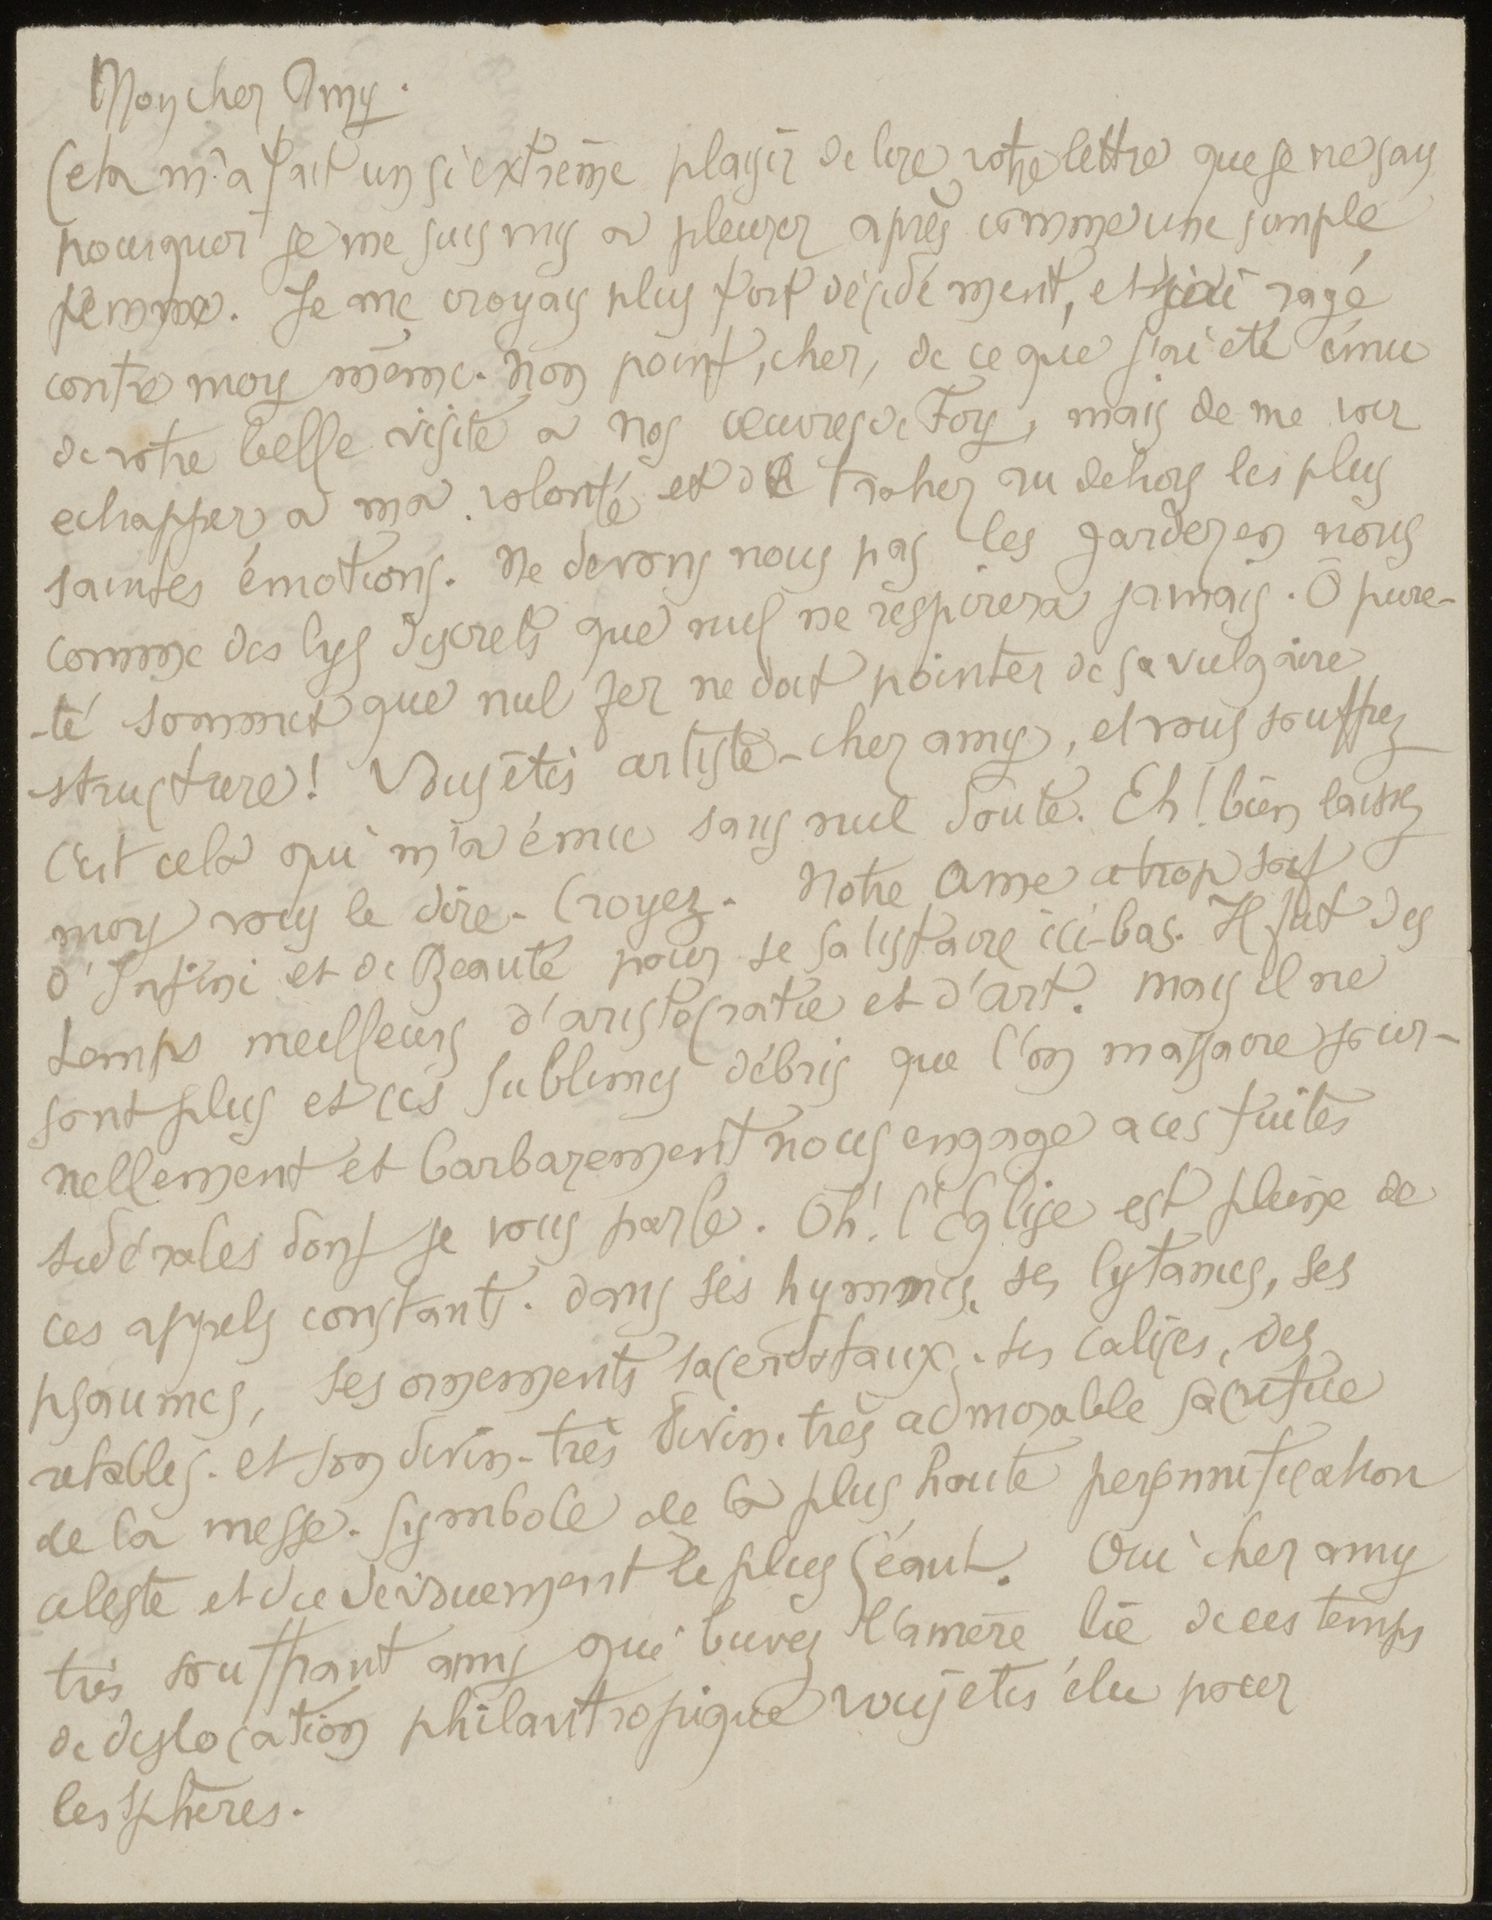 Mon cher Amy.
Cela m'a fait un si extrême plaisir de lire votre lettre que je ne say
pourquoi je me suis mis a pleurer après comme une simple
femme. Je me croyais plus fort décidément, et j'ai ragé
contre moy même. Non point, cher, de ce que j'ai été ému
de votre belle visite a nos œuvres de Foy, mais de me voir
echapper a ma volonté et de trahir au dehors les plus
saintes émotions. Ne devons nous pas les garder en nous
comme des lys discrets que nul ne respirera jamais. Ô pure-
-té sommet que nul fer ne doit pointer de sa vulgaire
structure! Vous êtes artiste - cher amy, et vous souffrez
C'est cela qui m'a ému sans nul doute. Eh! bien laissez
moy vous le dire. Croyez. Notre Ame a trop soif
d'Infini et de Beauté pour se satisfaire ici-bas. Il fut des
temps meilleurs d'aristocratie et d'art. mais il ne
sont plus et ces sublimes débris que l'on massacre jour-
nellement et barbarement nous engage a ces fuites
sidérales dont je vous parle. Oh! l'Eglise est pleine de
ces appels constants. dans ses hymnes, ses lytanies, ses
psaumes, ses ornements sacerdotaux. ses calices, des
retables. et son divin - très divin. très admirable sacrifice
de la messe. symbole de la plus haute personnification
celeste et du dévouement le plus séant. Oui cher amy
très souffrant amy qui buvez l'amère lie de ces temps
de dislocation philantropique vous êtes élu pour
les sphères.